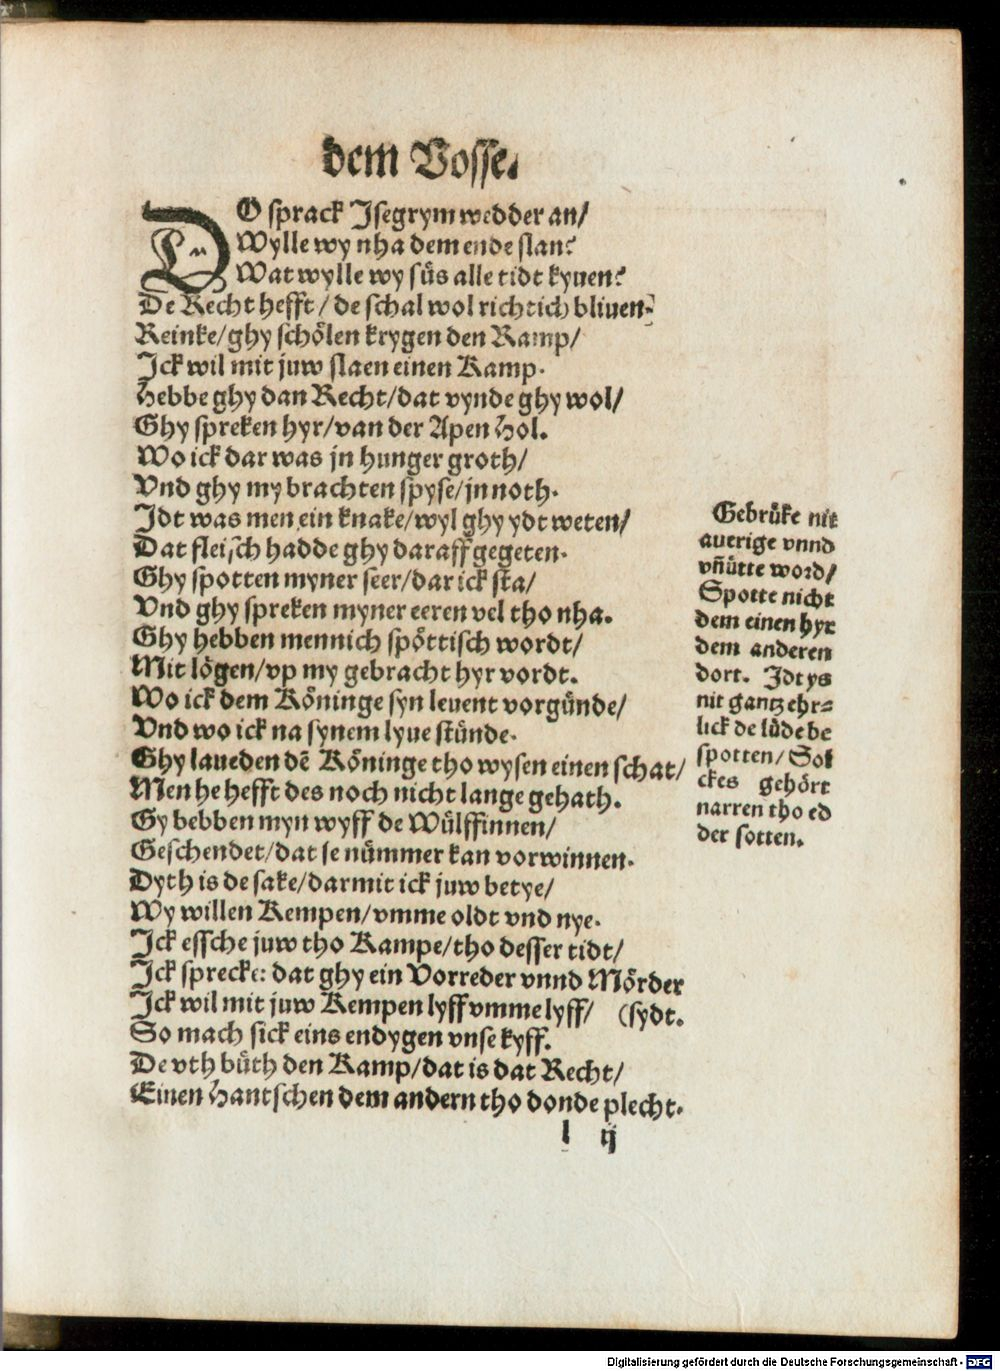 dem Vosse.
DO sprack Jsegrym wedder an/
Wylle wy nha dem ende slan?
Wat wylle wy süs alle tidt kyuen?
De Recht hefft / de schal wol richtich bliuen.
Reinke/ghy schölen krygen den Ramp/
Jck wil mit juw slaen einen Kamp.
Hebbe ghy dan Recht/dat vynde ghy wol/
Ghy spreken hyr/van der Apen Hol.
Wo ick dar was jn hunger groth/
Vnd ghy my brachten spyse/jn noth.
Jdt was men ein knake/wyl ghy ydt weten/
Dat fleisch hadde ghy daraff gegeten.
Ghy spotten myner seer/dar ick sta/
Vnd ghy spreken myner eeren vel tho nha.
Ghy hebben mennich spöttisch wordt/
Mit lögen/vp my gebracht hyr vordt.
Wo ick dem Köninge syn leuent vorgünde/
Vnd wo ick na synem lyue stünde.
Ghy laueden dē Köninge tho wysen einen schat/
Men he hefft des noch nicht lange gehath.
Gy bebben myn wyff de Wülffinnen/
Geschendet/dat se nümmer kan vorwinnen.
Dyth is de sake/darmit ick juw betye/
Wy willen Kempen/vmme oldt vnd nye.
Jck essche juw tho Kampe/tho desser tidt/
Jck sprecke: dat ghy ein Vorreder vnnd Mörder
Jck wil mit juw Kempen lyff vmme lyff/ (sydt.
So mach sick eins endygen vnse kyff.
De vth büth den Kamp/dat is dat Recht/
Einen Hantschen dem andern tho donde plecht.
l ij
Gebrüke nit
auerige vnnd
vñütte word/
Spotte nicht
dem einen hyr
dem anderen
dort. Jdt ys
nit gantz ehr⸗
lick de lüde be
spotten/Sol
ckes gehört
narren tho ed
der sotten.
Digitalisierung gefördert durch die Deutsche Forschungsgemeinschaft - DFG